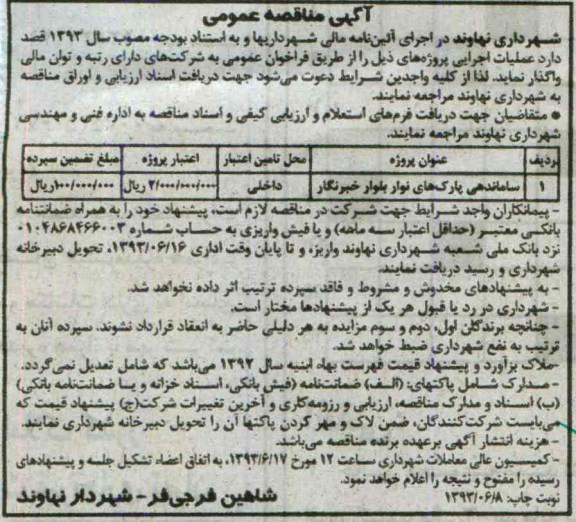 آگهی مناقصه عمومی
شهرداری نهاوند در اجرای آئین‌نامه مالی شهرداریها و به استناد بودجه مصوب سال ۱۳۹۳ قصد
دارد عملیات اجرایی پروژه‌های ذیل را از طریق فراخوان عمومی به شرکت‌های دارای رتبه و توان مالی
واگذار نماید. لذا از کلیه واجدین شرایط دعوت می‌شود جهت دریافت اسناد ارزیابی و اوراق مناقصه
به شهرداری نهاوند مراجعه نمایند.
● متقاضیان جهت دریافت فرم‌های استعلام و ارزیابی کیفی و اسناد مناقصه به اداره فنی و مهندسی
شهرداری نهاوند مراجعه نمایند.
ردیف عنوان پروژه محل تامین اعتبار اعتبار پروژه مبلغ تضمین سپرده
۱ ساماندهی پارک‌های نوار بلوار خبرنگار داخلی ۲/۰۰۰/۰۰۰/۰۰۰ ریال ۱۰۰/۰۰۰/۰۰۰ریال
- پیمانکاران واجد شرایط جهت شرکت در مناقصه لازم است، پیشنهاد خود را به همراه ضمانتنامه
بانکی معتبر (حداقل اعتبار سه ماهه) و یا فیش واریزی به حساب شماره ۰۱۰۴۸۶۸۴۶۶۰۰۳
نزد بانک ملی شعبه شهرداری نهاوند واریز، و تا پایان وقت اداری ۱۳۹۳/۰۶/۱۶، تحویل دبیرخانه
شهرداری و رسید دریافت نمایند.
- به پیشنهادهای مخدوش و مشروط و فاقد سپرده ترتیب اثر داده نخواهد شد.
- شهرداری در رد یا قبول هر یک از پیشنهادها مختار است.
- چنانچه برندگان اول، دوم و سوم مزایده به هر دلیلی حاضر به انعقاد قرارداد نشوند. سپرده آنان به
ترتیب به نفع شهرداری ضبط خواهد شد.
-ملاک برآورد و پیشنهاد قیمت فهرست بهاء ابنیه سال ۱۳۹۲ می‌باشد که شامل تعدیل نمی‌گردد.
- مدارک شامل پاکتهای: (الف) ضمانتنامه (فیش بانکی، اسناد خزانه و یا ضمانتنامه بانکی)
(ب) اسناد و مدارک مناقصه، ارزیابی و رزومه‌کاری و آخرین تغییرات شرکت(ج) پیشنهاد قیمت که
می‌بایست شرکت‌کنندگان، ضمن لاک و مهر کردن پاکتها آن را تحویل دبیرخانه شهرداری نمایند.
- هزینه انتشار آگهی برعهده برنده مناقصه می‌باشد.
- کمیسیون عالی معاملات شهرداری ساعت ۱۲ مورخ ۱۳۹۳/۶/۱۷، به اتفاق اعضاء تشکیل جلسه و پیشنهادهای
رسیده را مفتوح و نتیجه را اعلام خواهد نمود.
نوبت چاپ: ۱۳۹۳/۰۶/۸
شاهین فرجی‌فر- شهردار نهاوند